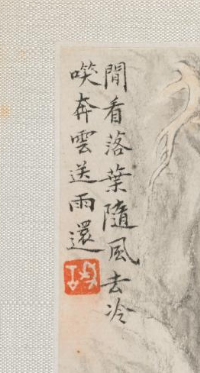 閒看落葉隨風去冷
咲奔雲送雨還